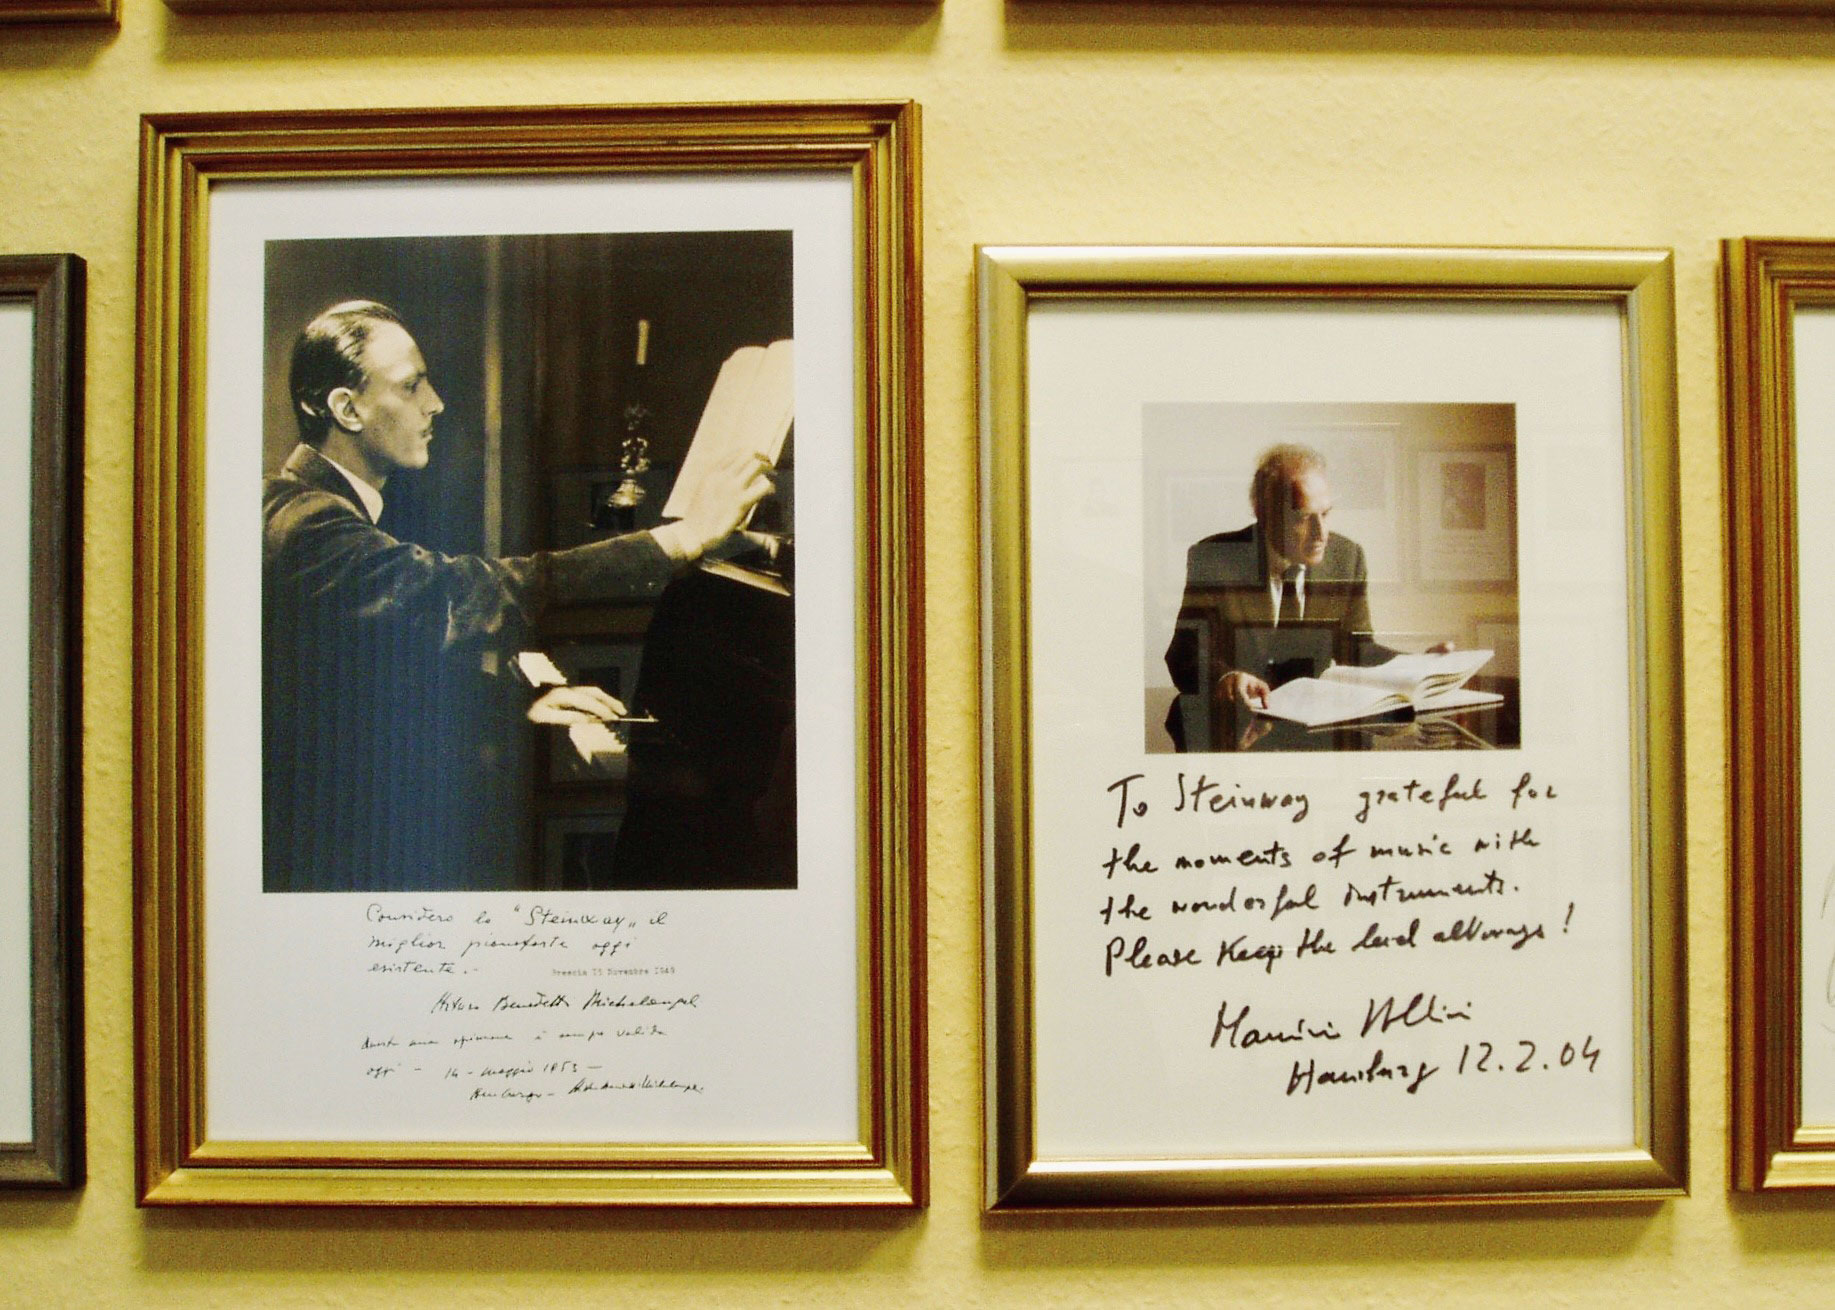 Considero lo "Steinway„ il
miglior pianoforte oggi
esistente.-
Brescia 15 Novembre 1949
Arturo Benedetti Michelangeli
questa mia opinione è sempre valida
oggi - 14 - maggio 1953 -
Hamburgo -
To Steinway grateful for
the moments of music with
the wonderful instruments.
Please Keep the lead allways!
Maurizio Pollini
Hamburg 12.2.04